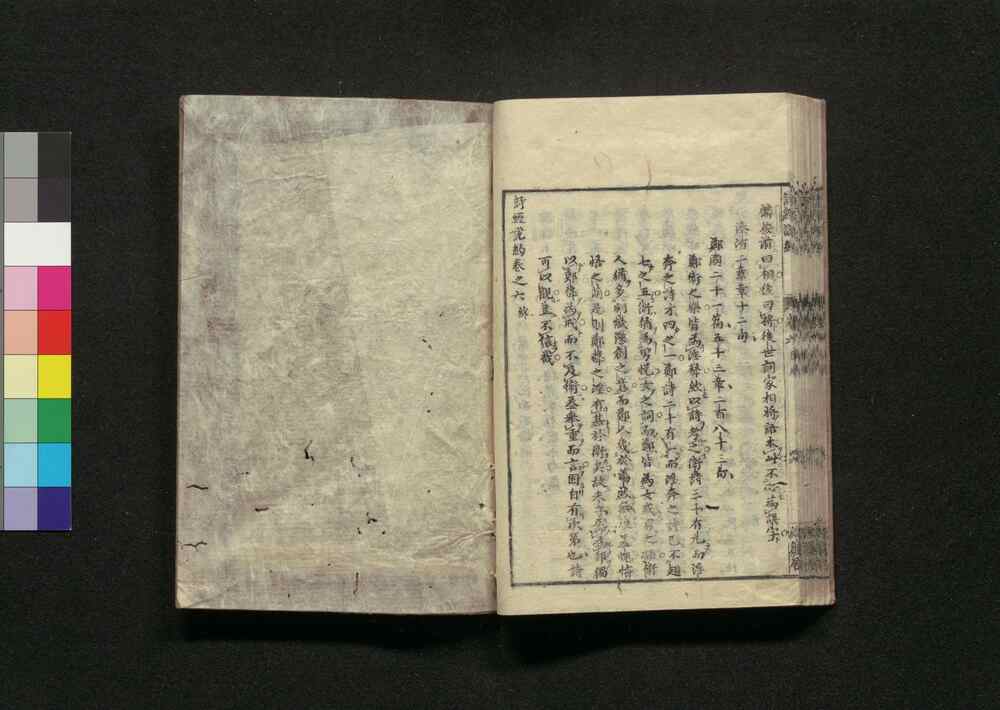 篇後前曰相後曰將後世詞家相將語本此不必為
溱洧二章章十二句
鄭國二十一篇五十三章二百八十三句
鄭衛之樂皆為淫聲然以詩考之衛詩三十有九而淫
奔之詩才四之一鄭詩二十有一而淫奔之詩已不翅
七之五衛猶為男悅女之詞而鄭皆為女惑男之語衛
人猶多刺譏懲創之意而鄭人幾於蕩然無復羞愧悔
悟之萌是則鄭聲之淫有甚於衛矣故夫子論為邦獨
以鄭聲為戒而不及衛蓋舉重而言固自有次第也詩
可以觀豈不信哉
詩經說約卷之六終